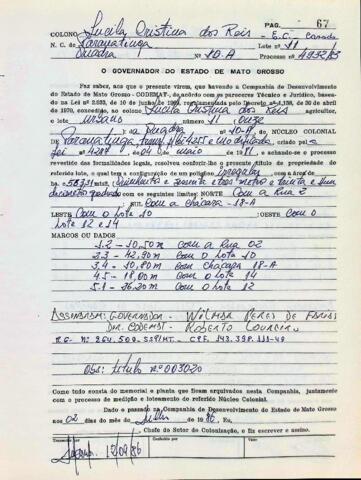 PAG. 67
COLONO Lucila Cristina dos Reis - E.C. Casada
N. C. de Paranatinga Lote nº 11
Quadra Nº 10-A Processo nº 4932/83
O GOVERNADOR DO ESTADO DE MATO GROSSO
Faz saber, aos que a presente virem, que havendo a Companhia de Desenvolvimento
do Estado de Mato Grosso - CODEMAT, de acordo com os pareceres Técnico e Jurídico, basea-
da na Lei nº 2.033, de 10 de junho de , regulamentada pelo Decreto nº 1.138, de 30 de abril
de 1970, concedido, ao colono Lucila Cristina dos Reis
agricultor, o lote urbano nº 11 Onze
na Quadra 10-A do NÚCLEO COLONIAL
DE Paranatinga, criado pela
Lei nº de 04 de maio de 1981, resolveu conferir-lhe o presente título de propriedade
revestido das formalidades legais, referente
lote, o qual tem a configuração de um polígono irregular com a área de
ha 563,31 (quinhentos e sessenta e três metros e trinta e um
decímetros quadrados) com os seguintes limites: NORTE Com a Rua 2
SUL Com a Chácara 18-A
LESTE Com o lote 10 OESTE Com o
lote 12 e 14
MARCOS OU DADOS
1.2 - 10,50m com a Rua 02
2.3 - 42,90m Com o lote 10
3.4 - 10,80m com chácara 18-A
4.5 - 18,00m com o lote 14
5.1 - 26,20m com o lote 12
ASSINARAM: GOVERNADOR - WILMAR PERES DE FARIAS
DIR. CODEMAT - ROBERTO LOUREIRO
R.G - Nº 264.500-SSP/MT - CPF. 143.398.111-49
Obs: título nº 003020
Como tudo consta do memorial e planta que ficam arquivados nesta Companhia, juntamente
com o processo de medição e loteamento do referido Núcleo Colonial.
Dado e passado na Companhia de Desenvolvimento do Estado de Mato Grosso
aos 02 dias do mês de julho de 1986, Eu,
Chefe do Setor de Colonização, o fiz escrever e assino.
12/09/86